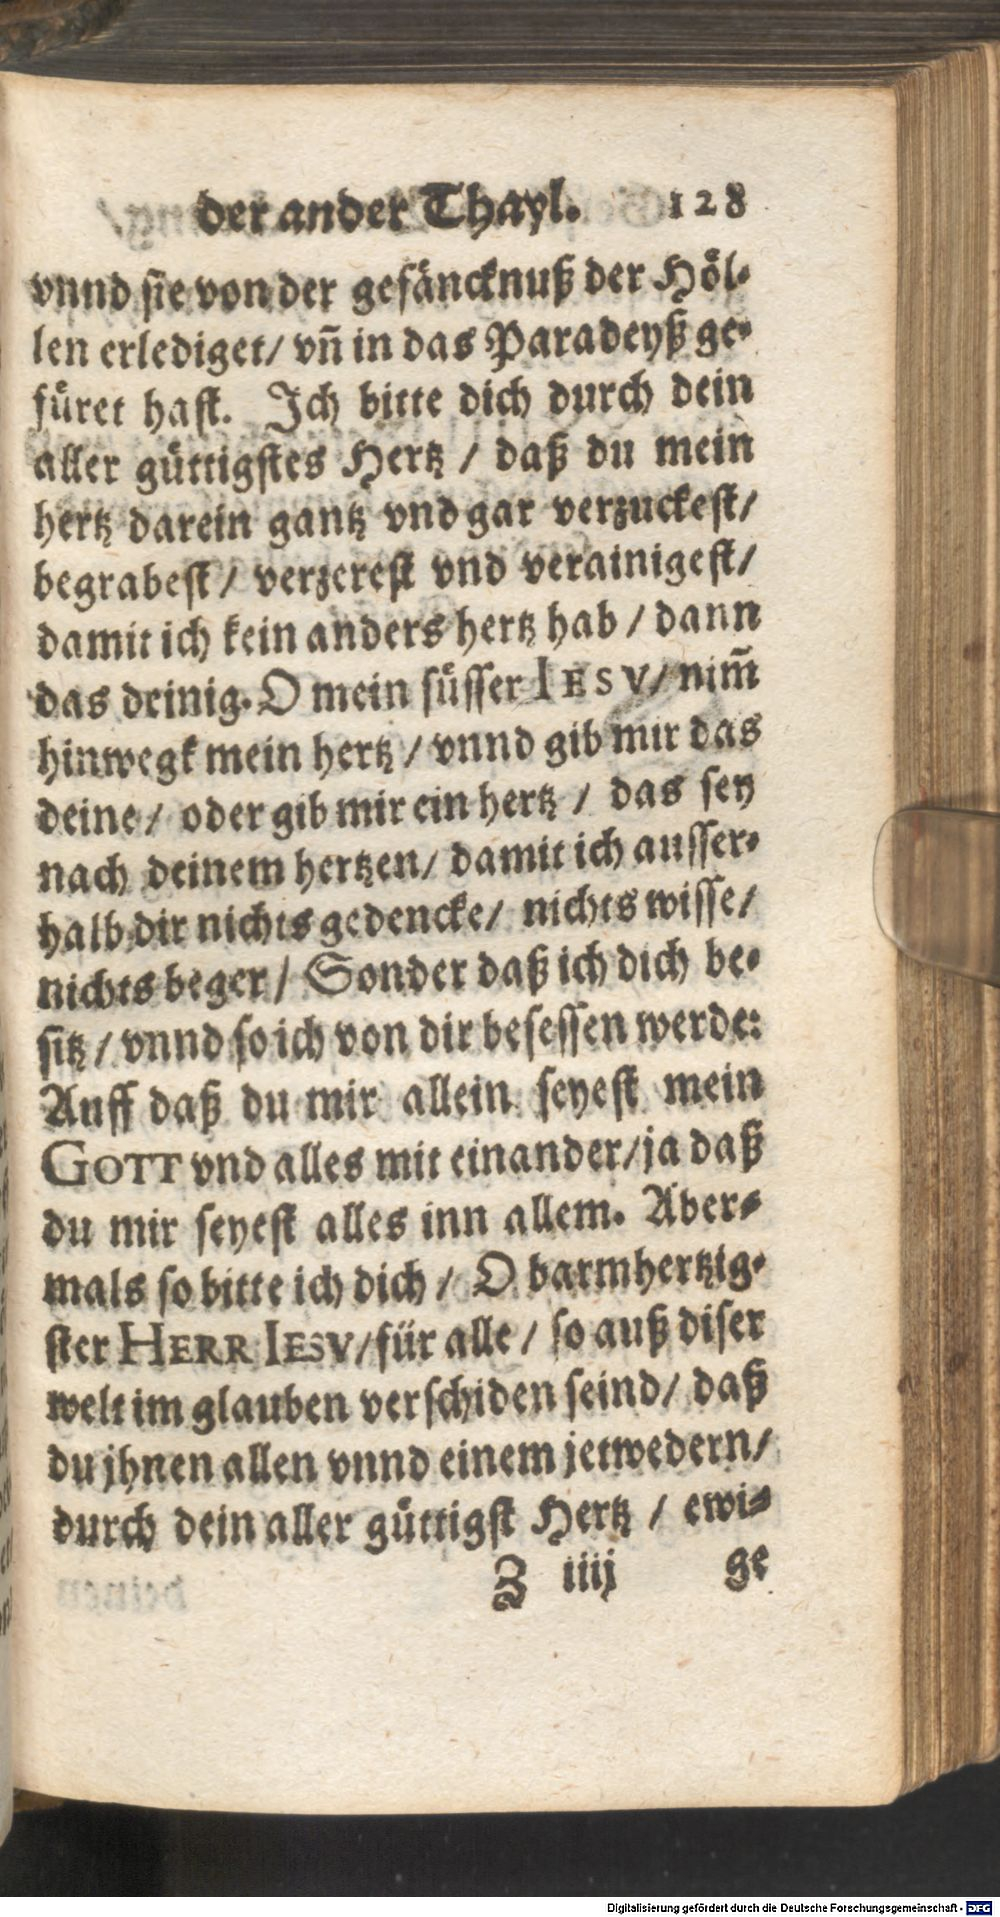 der ander Thayl. 128
vnnd sie von der gefäncknuß der Höl-
len erlediget/ vñ in das Paradeyß ge-
füret hast. Ich bitte dich durch dein
aller güttigstes Hertz / daß du mein
hertz darein gantz vnd gar verzuckest/
begrabest/ verzerest vnd verainigest/
damit ich kein anders hertz hab / dann
das deinig. O mein süsser IESV/ nim̃
hinwegk mein hertz / vnnd gib mir das
deine/ oder gib mir ein hertz / das sey
nach deinem hertzen/ damit ich ausser-
halb dir nichts gedencke/ nichts wisse/
nichts beger/ Sonder daß ich dich be-
sitz / vnnd so ich von dir besessen werde:
Auff daß du mir allein seyest mein
GOTT vnd alles mit einander/ ja daß
du mir seyest alles inn allem. Aber-
mals so bitte ich dich / O barmhertzig-
ster HERR IESV/ für alle / so auß diser
welt im glauben verschiden seind/ daß
du jhnen allen vnnd einem jetwedern/
durch dein aller güttigst Hertz / ewi-
Z iiij ge
Digitalisierung gefördert durch die Deutsche Forschungsgemeinschaft - DFG